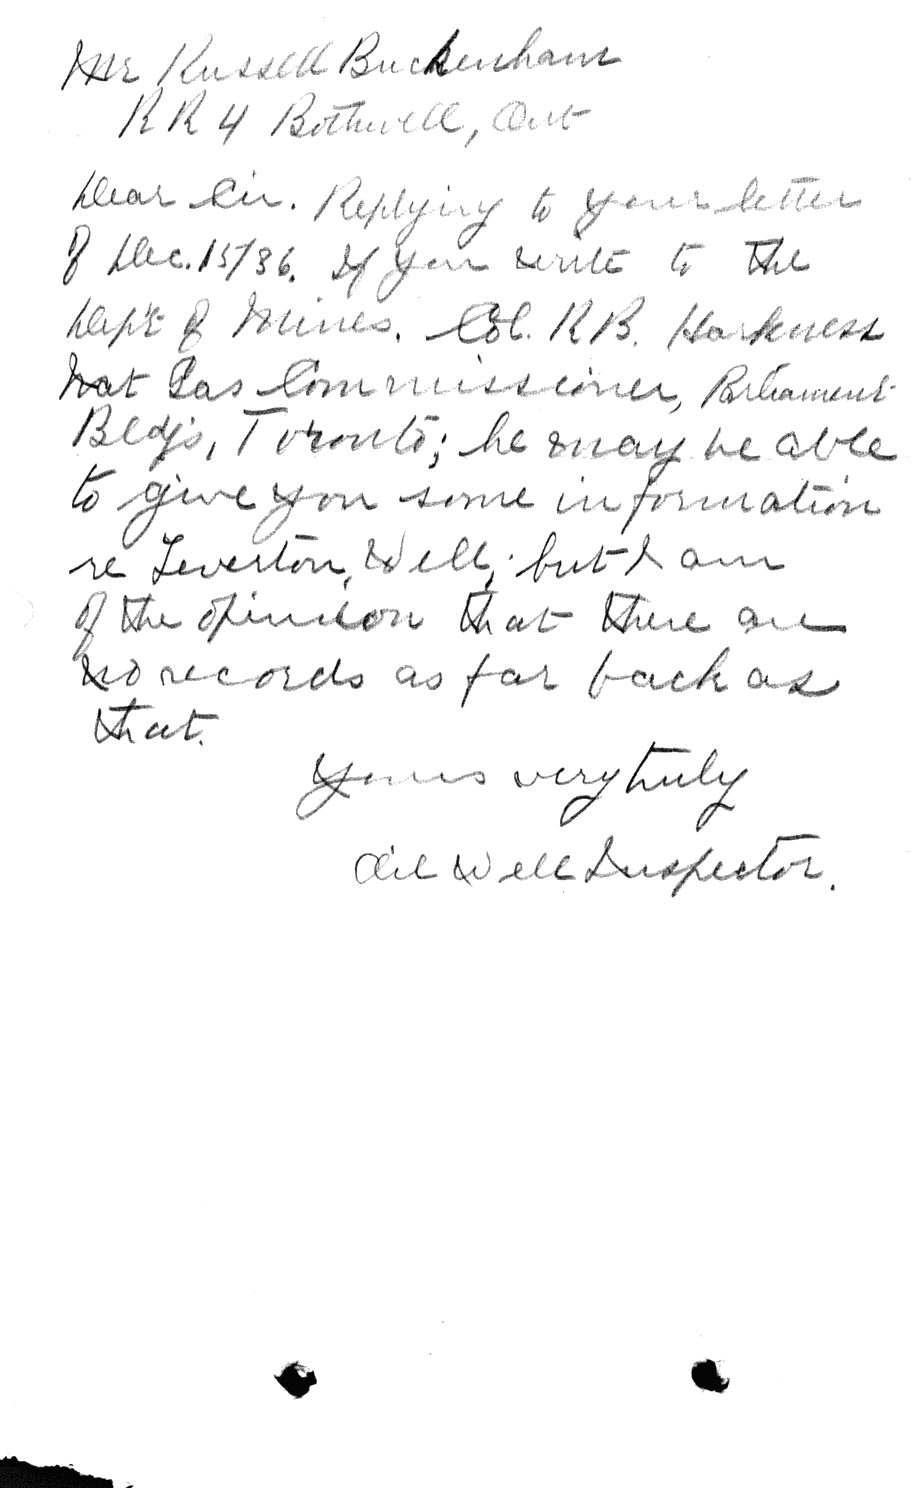 Mr Russell Buckenham
RR 4 Bothwell, Ont
Dear Sir. Replying to your letter
of Dec. 15/36. If you write to the
Dep't of Mines. Col. R B. Harkness
Nat Gas Commissioner, Parliament
Bldg's, Toronto; he may be able
to give you some information
re Leverton, Well, but I am
of the opinion that there are
no records as far back as
that.
Yours very truly
Oil Well Inspector.